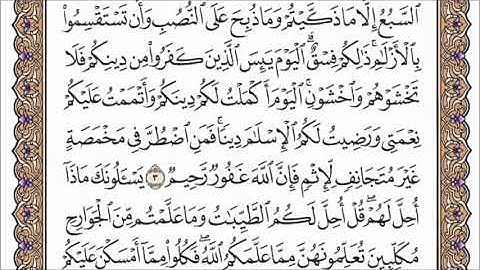 السَّبُعُ إِلَّا مَا ذَكَّيْتُمْ وَمَا ذُبِحَ عَلَى النُّصُبِ وَأَن تَسْتَقْسِمُوا۟
بِالْأَزْلَٰمِ ۚ ذَٰلِكُمْ فِسْقٌ ۗ الْيَوْمَ يَئِسَ الَّذِينَ كَفَرُوا۟ مِن دِينِكُمْ فَلَا
تَخْشَوْهُمْ وَاخْشَوْنِ ۚ الْيَوْمَ أَكْمَلْتُ لَكُمْ دِينَكُمْ وَأَتْمَمْتُ عَلَيْكُمْ
نِعْمَتِى وَرَضِيتُ لَكُمُ الْإِسْلَٰمَ دِينًا ۚ فَمَنِ اضْطُرَّ فِى مَخْمَصَةٍ
غَيْرَ مُتَجَانِفٍ لِّإِثْمٍ ۙ فَإِنَّ اللَّهَ غَفُورٌ رَّحِيمٌ ٣ يَسْـَٔلُونَكَ مَاذَآ
أُحِلَّ لَهُمْ ۖ قُلْ أُحِلَّ لَكُمُ الطَّيِّبَٰتُ ۙ وَمَا عَلَّمْتُم مِّنَ الْجَوَارِحِ
مُكَلِّبِينَ تُعَلِّمُونَهُنَّ مِمَّا عَلَّمَكُمُ اللَّهُ ۖ فَكُلُوا۟ مِمَّآ أَمْسَكْنَ عَلَيْكُمْ